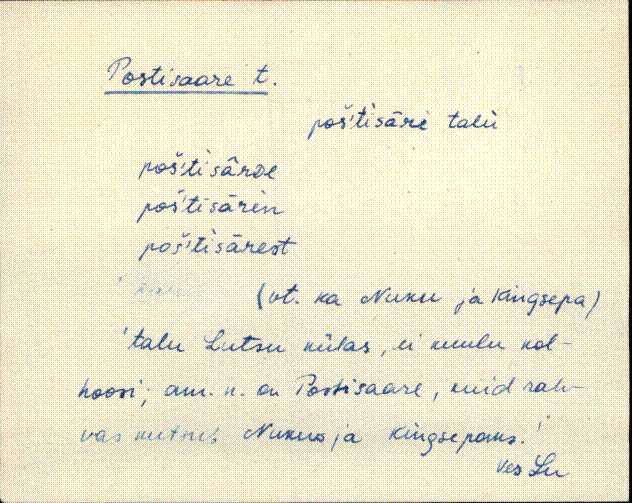 Postisaare t.
poštisāri talù
poštisārde
poštisārin
poštisārest
(vt. ka Nuku ja Kingsepa)
'talu Lutsu külas, ei kuulu kol-
hoosi; am. n. on Postisaare, kuid rah-
vas kutsus Nukuo ja Kingsepaks.'
Ves Lu